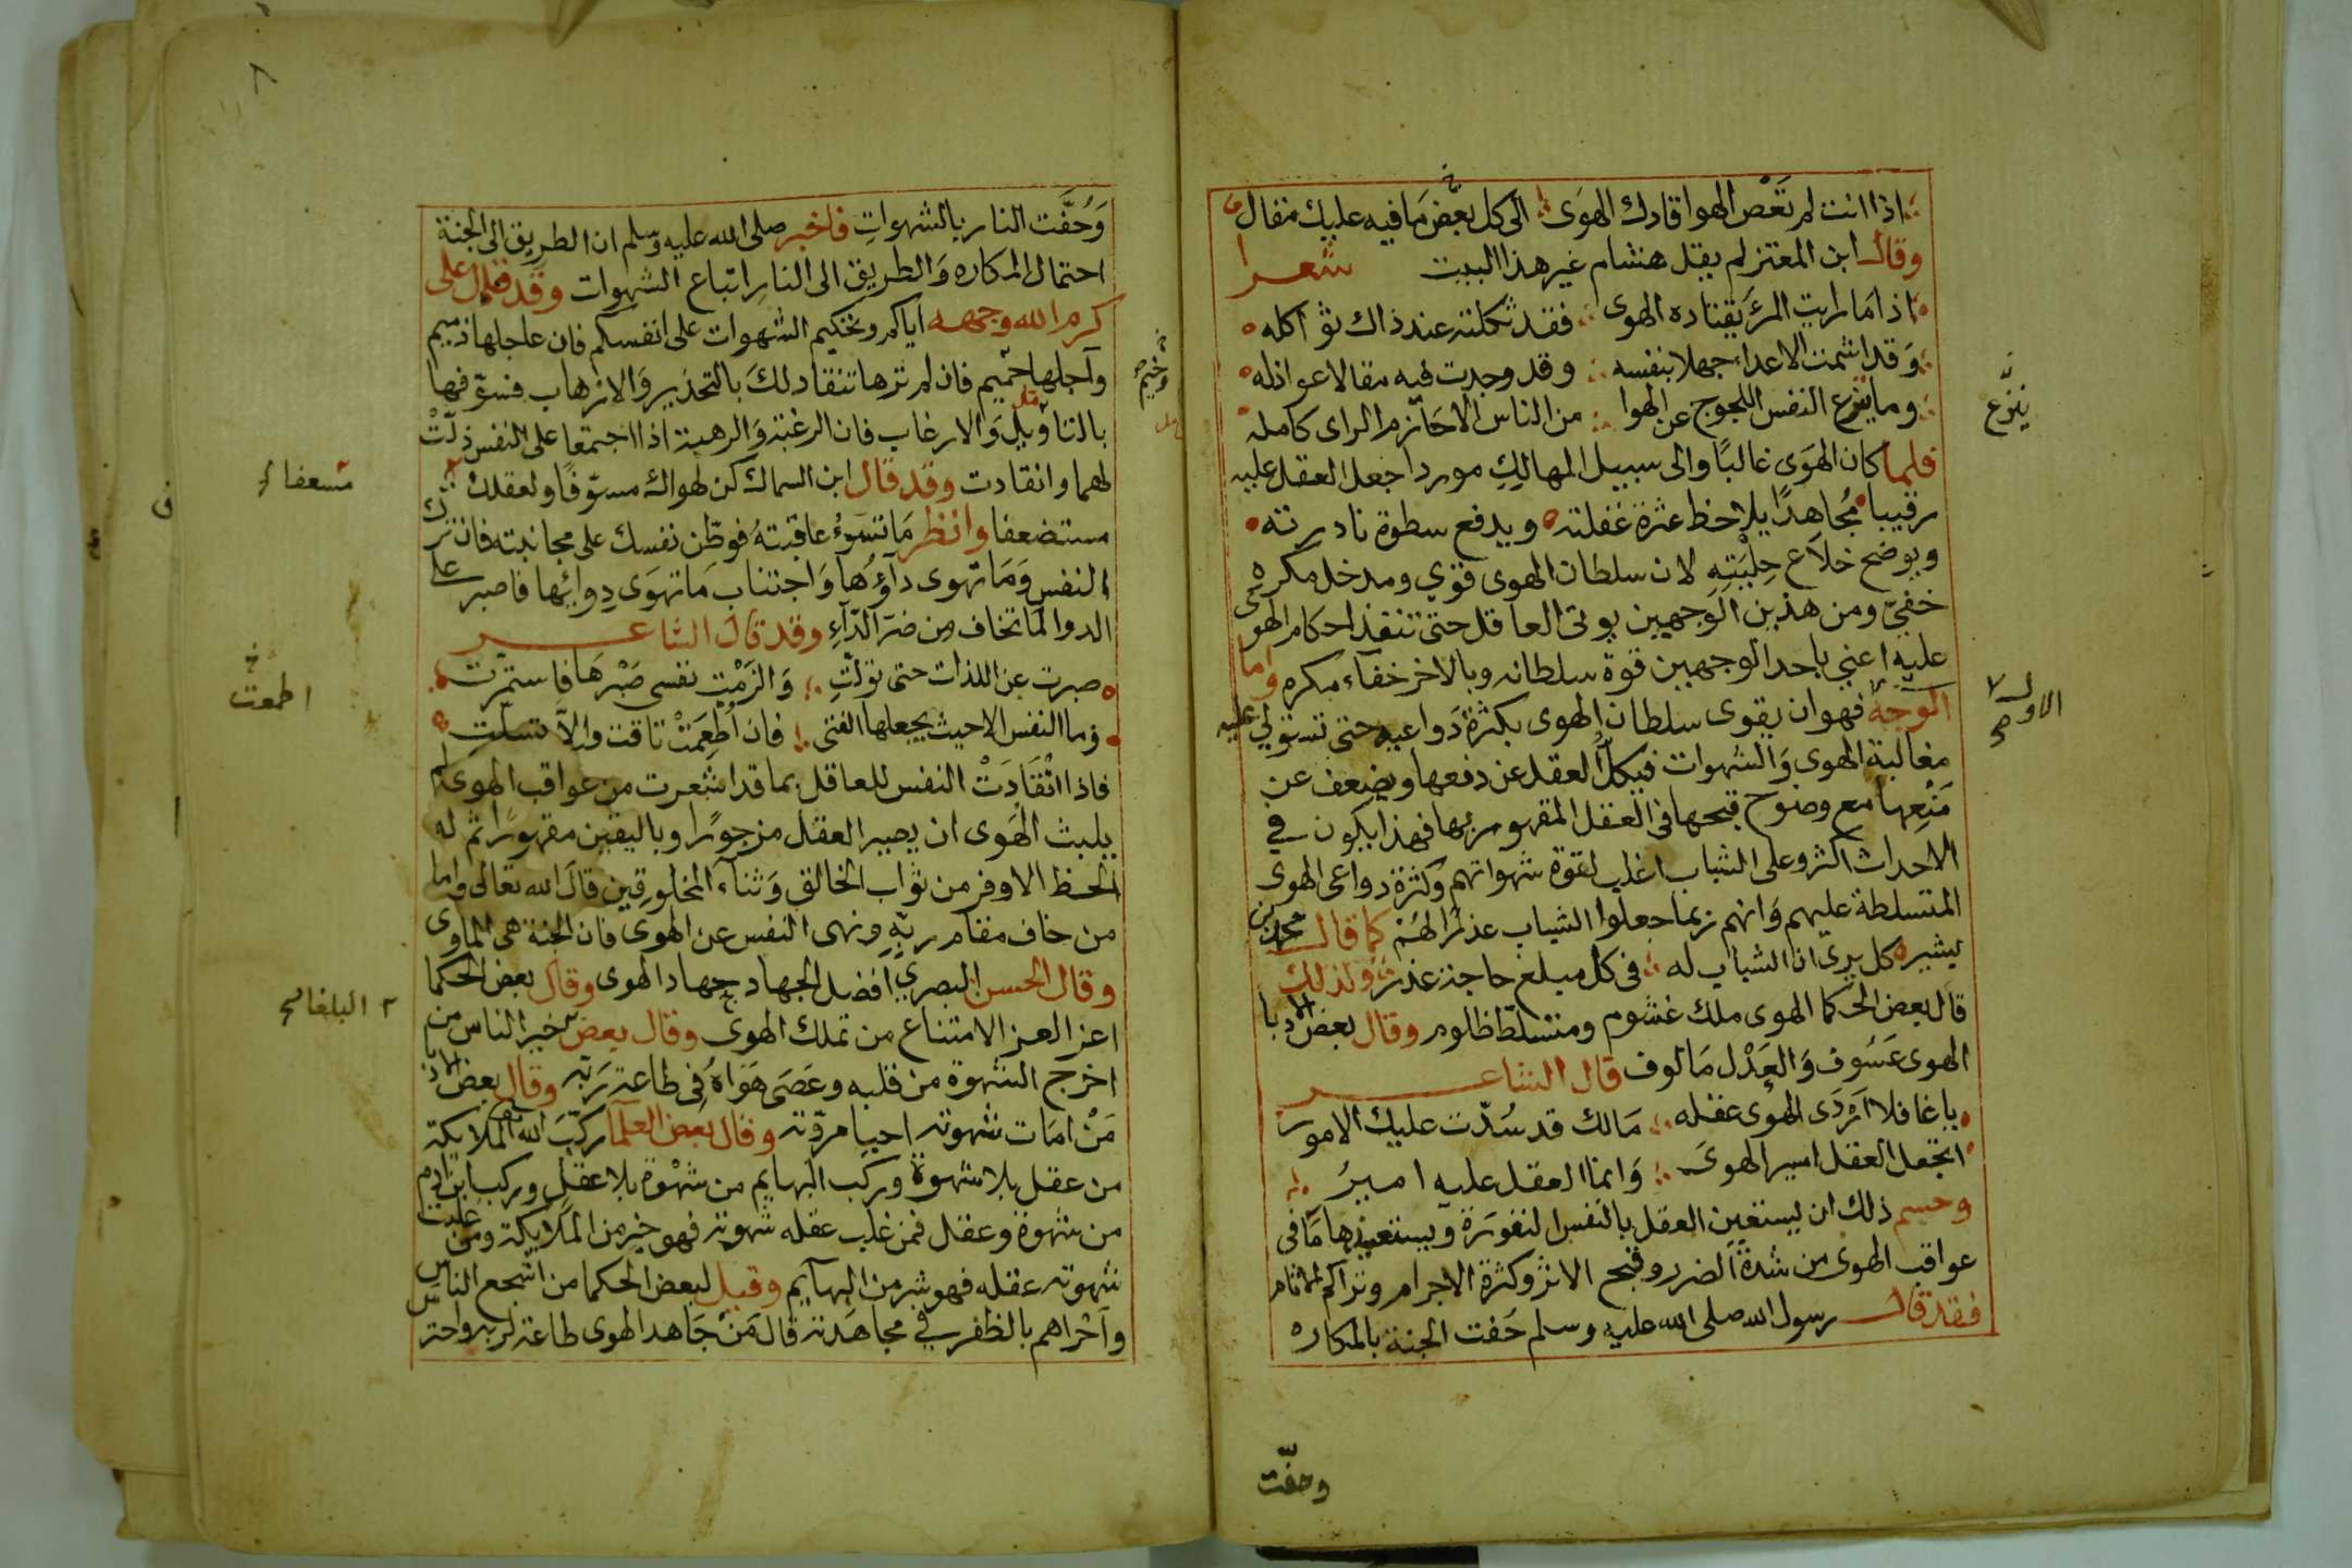 اذا انت لم تَعْص الهوا قادك الهَوى الى كل بعض مَا فيه عليك مقال
وقال ابن المعتز لم يقل هشام غير هذا البيت شعرا
اذا مَا رايت المرءَ يَقتاده الهوى فقد ثكلته عند ذاك ثواكله
وَقد اشمت الاعداء جهلا بنفسه وقد وجدت فيه مقالا عواذله
وما ينزع النفس اللجوج عن الهوا من الناس الا حَازم الراى كامله
فلما كان الهَوى غالبًا والى سبيل المهالكِ موردا جعل العقل عليه
رقيبا مُجاهدًا يلاحظ عثرة غفلته ويدفع سطوة نادرته
ويوضح خلاَع حِلْيَتِهِ لان سلطان الهوى قوي ومدخل مكره
خفيّ ومن هذين الوجهين يوتى العاقل حتى تنفذ احكام الهوى
عليه اعني باحد الوجهين قوة سلطانه وبالاخر خفاء مكره واما
الوجه فهو ان يقوى سلطان الهوى بكثرة دَواعيه حتى تستولي عليه
مغالبة الهوى وَالشهوات فيكلّ العقل عن دفعها ويضعف عن
مَنْعِها مع وضوح قبحها فى العقل المقهور بها فهذا يكون في
الاحداث اكثر وعلى الشباب اغلب لقوة شهواتهم وكثرة دواعى الهوى
المتسلطة عليهم وَانهم ربما جعلوا الشباب عذرًا لهُمْ كما قال محمد بن
بشير كل يرى ان الشباب له فى كل مبلغ حاجة عذر ولذلك
قال بعض الحكما الهوى ملك غشوم ومتسلّط ظلوم وقال بعض الادبا
الهوى عَسُوف وَالعَدْل مَالوف قال الشاعر
يا غافلا اَرْدَى الهوى عقله مَالك قد سُدّت عليك الامور
اتجعل العقل اسير الهوى وَانما العقل عليه اميرُ
وحسم ذلك ان يستعين العقل بالنفس النفورَة ويستعيذها مَا فى
عواقب الهوى من شدة الضرر وقبح الاثر وكثرة الاجرام وتراكم الاثام
فقد قال رسول الله صلى الله عليه وسلم حَفت الجنة بالمكاره
وحفّت
ينزّع
الاول
وَحُفَّت النار بالشهواتِ فاخبر صلى الله عليه وسلم ان الطريق الى الجنة
احتمال المكاره وَالطريق الى النارِ اتباع الشهوات وقد قال على
كرم الله وجهه اياكم وتحكيم الشهوات على انفسكم فان عاجلها ذميم
وآجلها حَميم فان لم ترها تنقاد لكَ بالتحذير وَالارهاب فسوّفها
بالتاويل وَالارغاب فان الرغبة وَالرهبة اذا اجتمعا على النفس ذلّتْ
لهما وانقادت وقد قال ابن السماك كن لهواك مسوّفًا ولعقلك
مستضعفا وانظر مَا تسَوءُ عاقبتهُ فوطّن نفسك على مجانبته فان ترك
النفسِ وَمَا تهوى داؤُها وَاجتناب مَا تهوَى دوائها فاصبر على
الدوا لما تخاف من ضرّ الدّآءِ وقد قالَ الشاعر
صبرت عن اللذات حتى تولّتِ وَالزَمْت نفسى صَبْرهَا فاستمرّت
وما النفس الا حيث يجعلها الفتى فان اُطْعِمَتْ تاقت وَالاّ تسلّتِ
فاذا انْقَادَتْ النفس للعاقل بما قد اشعرت من عواقب الهوى لم
يلبث الهَوى ان يصير العقل مزجورًا وباليقين مقهورًا ثم له
الحظ الاوفر من ثواب الخالق وَثناء المخلوقين قالَ الله تعالى واما
من خاف مقام ربّهِ ونهى النفس عن الهوى فان الجنة هى الماوى
وقال الحسن البصري افضل الجهاد جهاد الهوى وقال بعض الحكما
اعز العز الامتناع من تملك الهوى وقال بعض خير الناس من
اخرج الشهوة من قلبه وعَصَى هَوَاهُ فِى طاعة رَبّه وقال بعض الاد
مَنْ امَات شهوته احيا مروّته وقال بعض العلما ركّبَ الله الملايكة
من عقل بلا شهوة وركب البهايم من شهْوة بلا عقل وركب ابن ادم
من شهوة وعقل فمن غلب عقله شهوته فهو خير من المَلايكة ومن غلبت
شهوته عقله فهو شر من البهآيم وقيل لبعض الحكما من اشجع الناس
وآحْراهم بالظفر في مجاهَدته قال مَنْ جَاهد الهوى طاعة لربه واحترس
وخيم
مسعفا
اطمعت
البلغا
٨